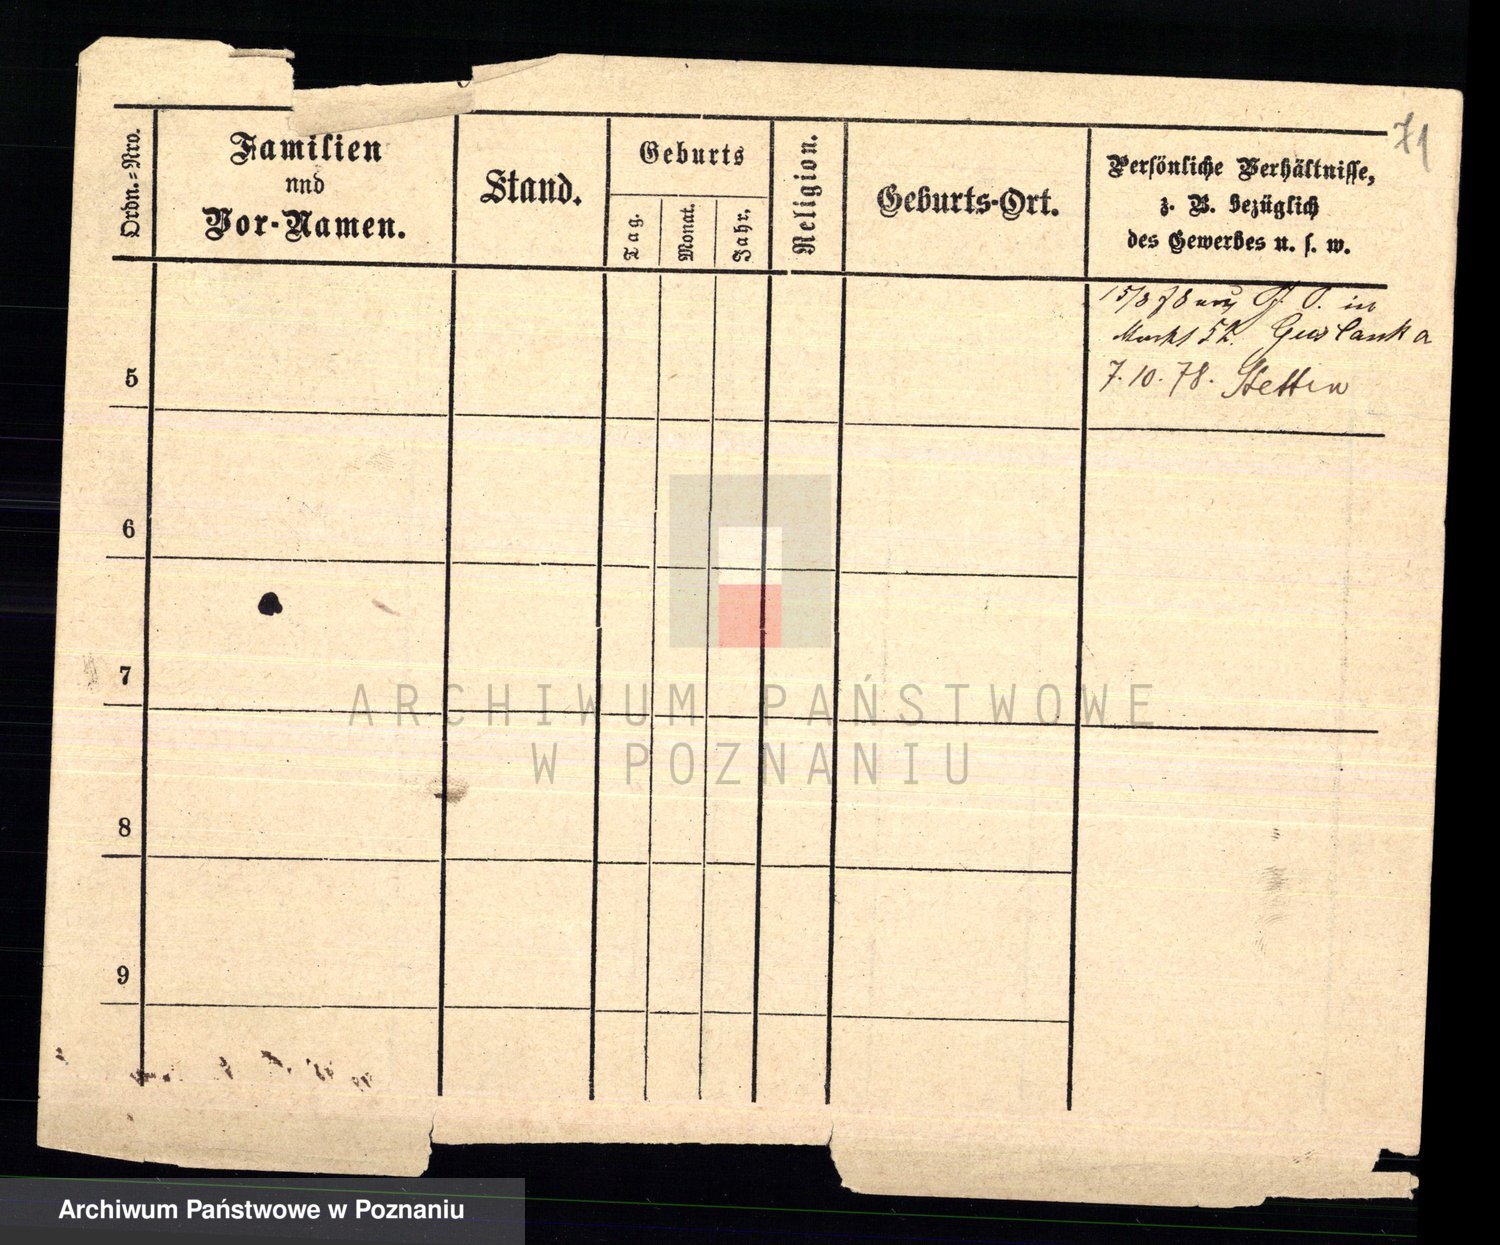 71
Ordn.-Nro.
Familien
und
Vor-Namen.
Stand.
Geburts
Tag.
Monat.
Jahr.
Religion.
Geburts-Ort.
Persönliche Verhältnisse,
z. B. bezüglich
des Gewerbes u. s. w.
15/8 78 in
Markt 52.
7.10.78. Stettin
5
6
7
8
9
ARCHIWUM PAŃSTWOWE
W POZNANIU
Archiwum Państwowe w Poznaniu